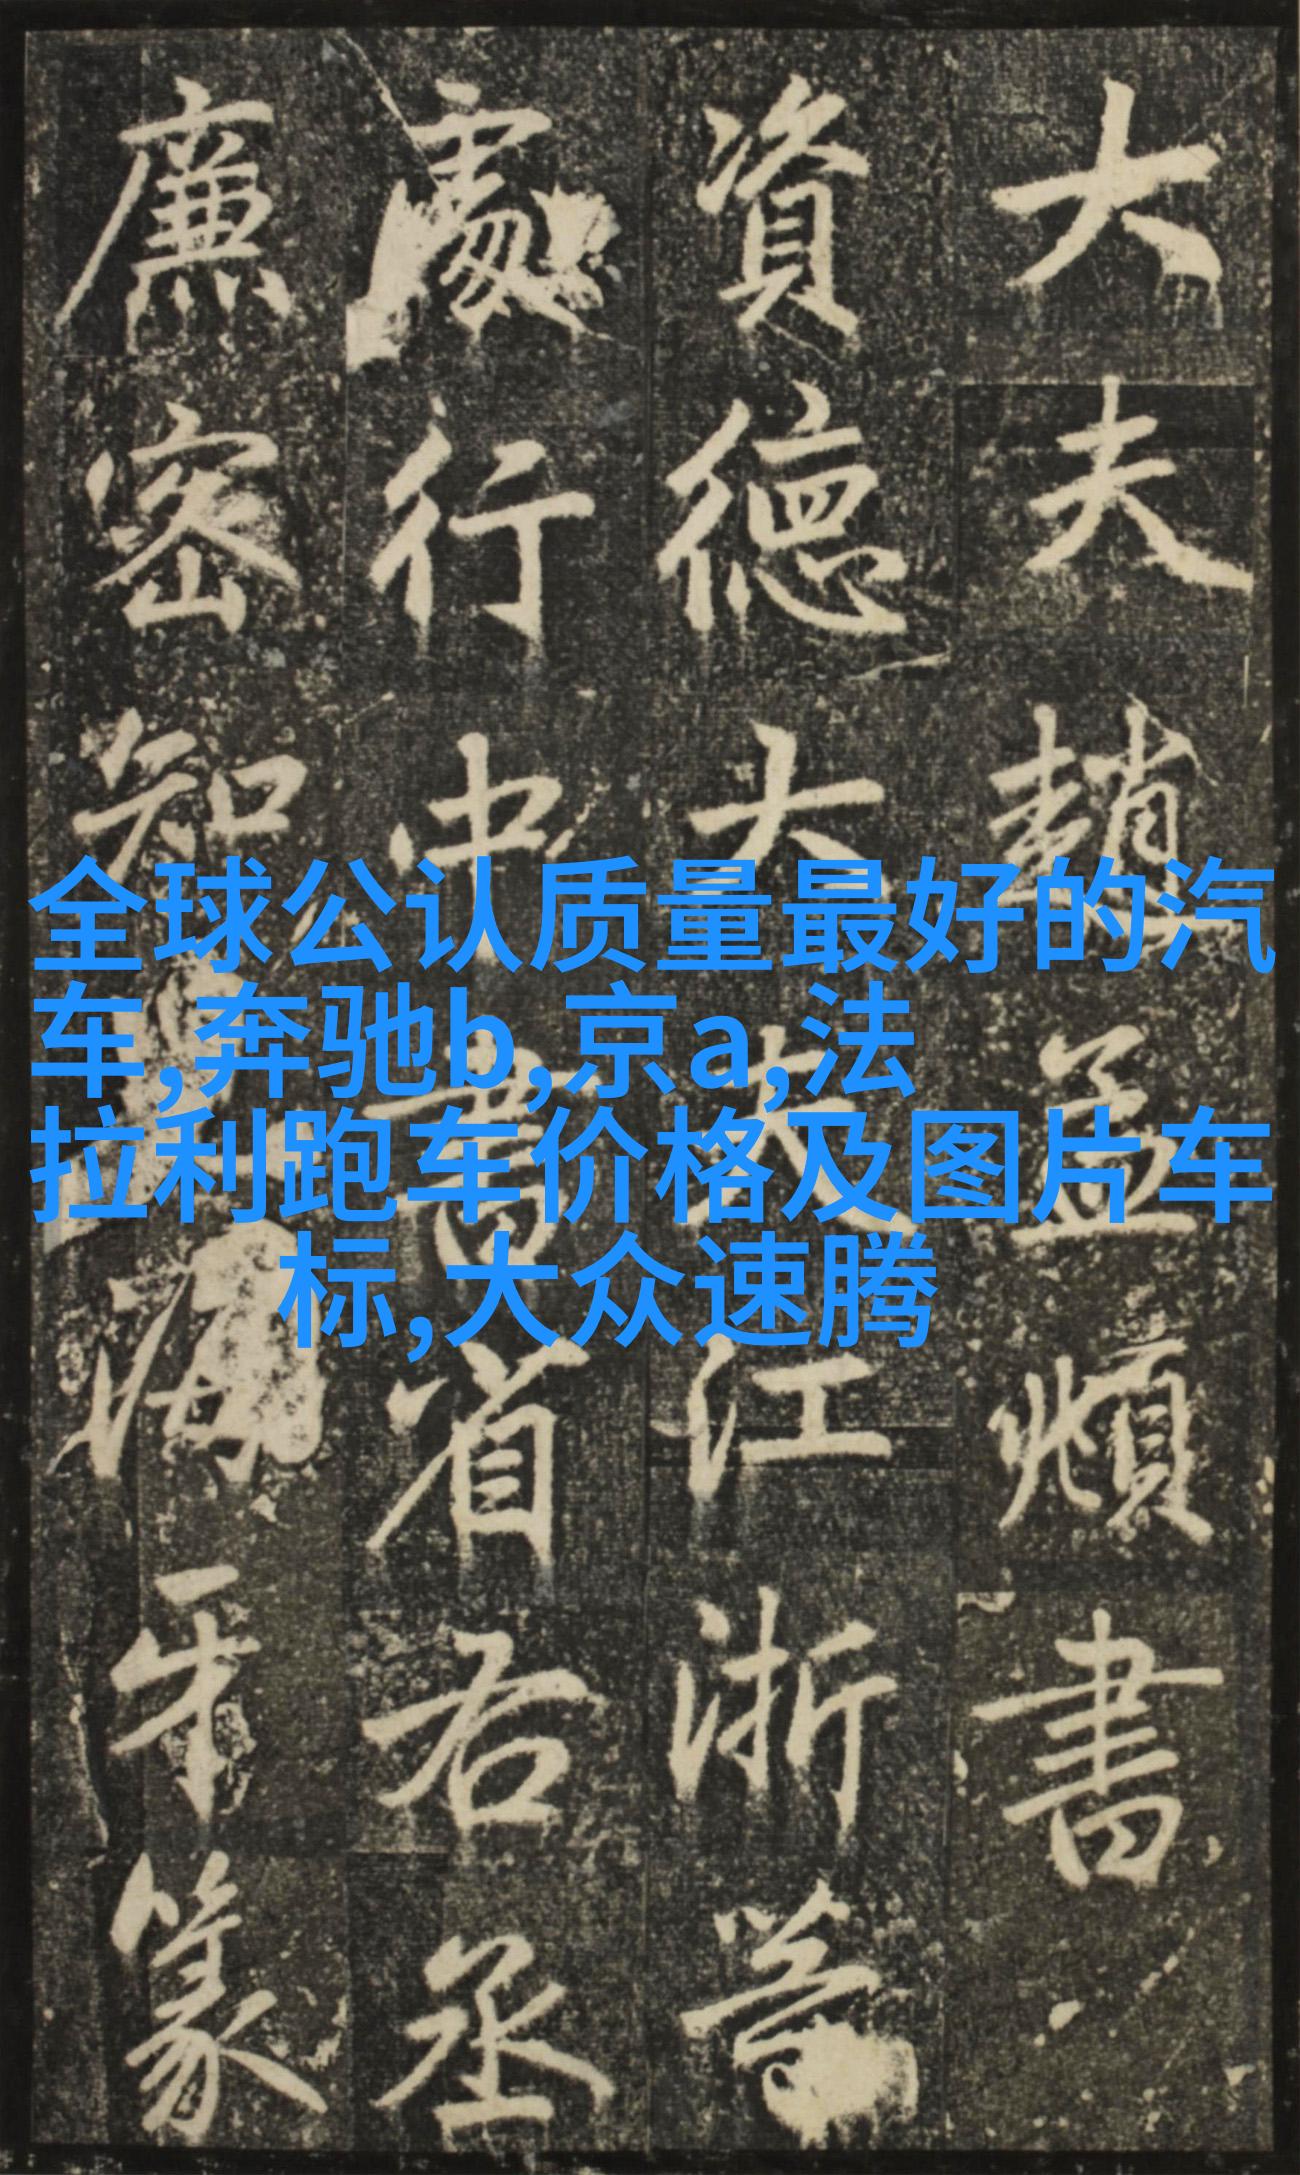 大夫趙孟頫書
資德大夫江浙等
處行中書省右丞
廉密知海牙篆
全球公认质量最好的汽
车,奔驰b,京a,法
拉利跑车价格及图片车
标,大众速腾